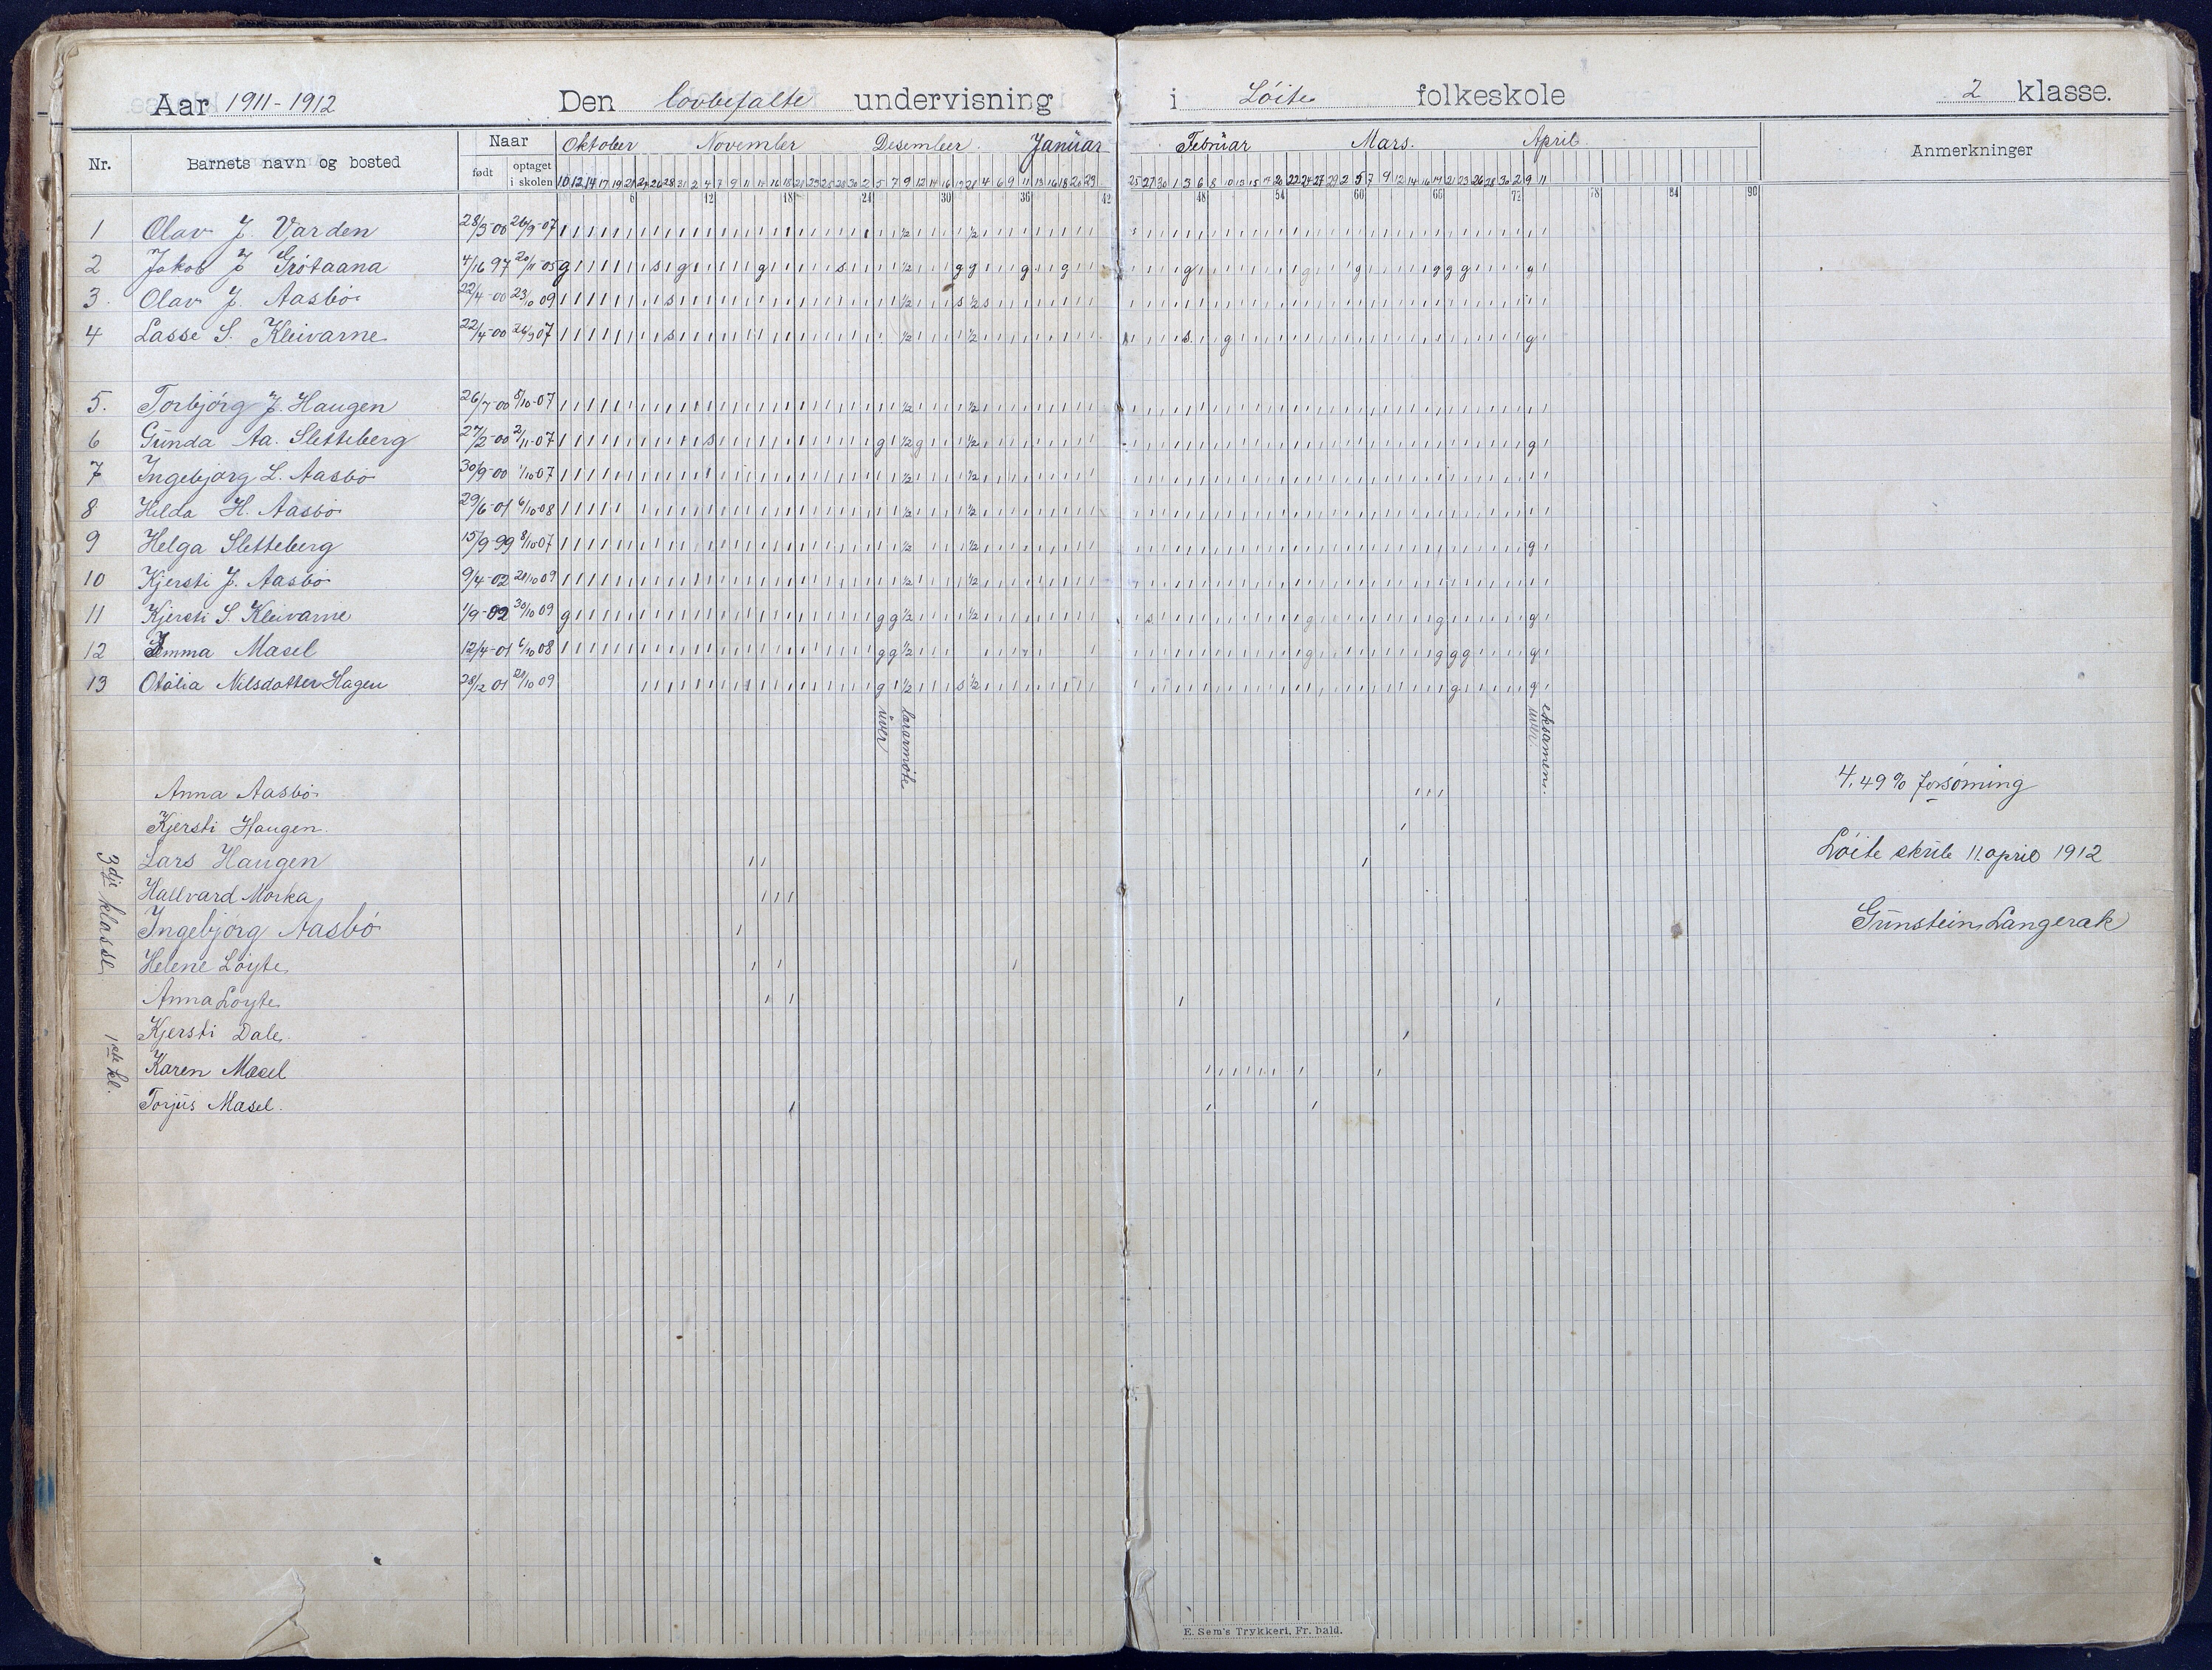 Aar 1911-1912 Den lovbefalte undervisning i Löite folkeskole 2 klasse.
Nr. Barnets navn og bosted Naar født optaget i skolen Oktober November Desember Januar Februar Mars. April Anmerkninger
6 12 18 24 30 36 42 48 54 60 66 72 78 84 90
1 Olav J. Varden 28/3-00 26/9-07
2 Jakob J Grötaana 4/16 97 20/11-05
3. Olav J. Aasbö 22/4-00 23/10 09
4 Lasse S. Kleivarne 22/4-00 26/9 07
5. Torbjörg J. Haugen 26/7-00 5/10-07
6 Gunda Aa. Sletteberg 27/2-00 2/11-07
7 Ingebjörg L. Aasbö 30/9-00 1/10 07
8 Hilda H. Aasbö 29/6-01 6/10-08
9 Helga Sletteberg 15/9-99 8/10-07
10 Kjersti J. Aasbö 9/4-02 21/10 09
11 Kjersti S. Kleivarne 1/9-02 30/10 09
12 Emma Masel 12/4-01 6/10 08
13 Otalia Nilsdatter Hagen 28/12 01 21/10 09
uver
lærarmöte
uver.
eksamen.
Anna Aasbö
4,49% forsöming
Kjersti Haugen.
3dje klasse
Lars Haugen
Löite skule 11. april 1912
Hallvard Morka
Ingebjörg Aasbö
Gunstein Langerak
Helene Löyte
Anna Löyte
1ste kl.
Kjersti Dale
Karen Masel
Torjus Masel.
E. Sem's Trykkeri, Fr. hald.